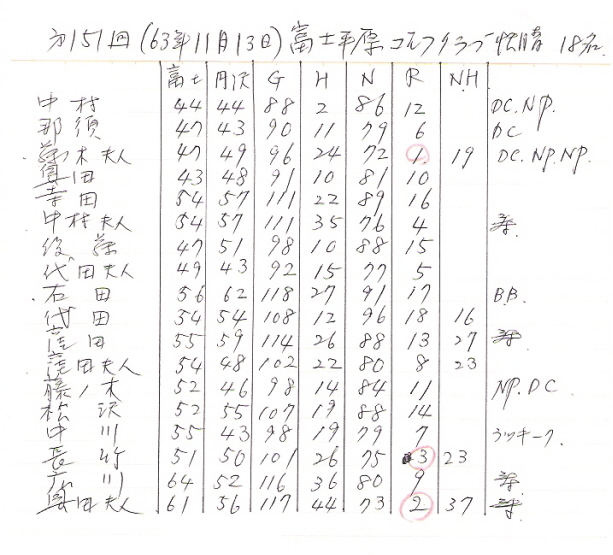 第151回 (63年11月13日) 富士平原ゴルフクラブ 快晴 18名
富士 丹沢 G H N R N.H
中村 44 44 88 2 86 12 DC. NP.
那須 47 43 90 11 79 6 DC
藤ノ木夫人 47 49 96 24 72 1. 19 DC. NP. NP.
真田 43 48 91 10 81 10
寺田 54 57 111 22 89 16
中村夫人 54 57 111 35 76 4
後藤 47 51 98 10 88 15
代田夫人 49 43 92 15 77 5
石田 56 62 118 27 91 17 B.B.
代田 54 54 108 12 96 18 16
窪田 55 59 114 26 88 13 27
窪田夫人 54 48 102 22 80 8 23
藤ノ木 52 46 98 14 84 11 NP. DC
松沢 52 55 107 19 88 14
中川 55 43 98 19 79 7 ラッキー7.
長竹 51 50 101 26 75 3 23
川 64 52 116 36 80 9
真田夫人 61 56 117 44 73 2 37